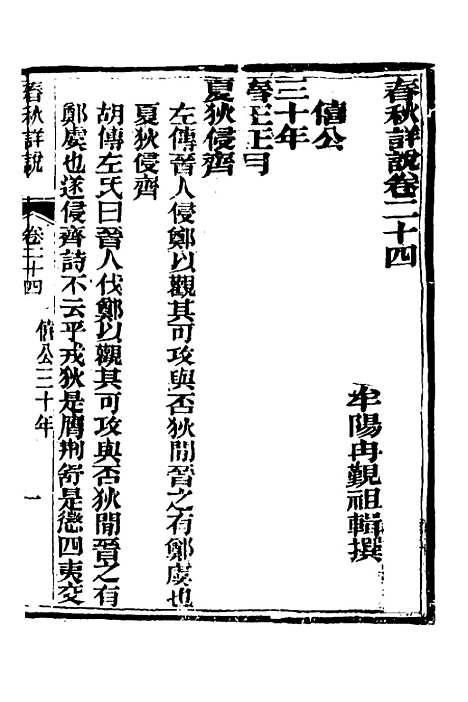 春秋詳說卷二十四
牟陽冉覲祖輯撰
僖公
三十年
春王正月
夏狄侵齊
左傳晉人侵鄭以觀其可攻與否狄間晉之有鄭虞也
夏狄侵齊
胡傳左氏曰晉人伐鄭以觀其可攻與否狄間晉之有
鄭虞也遂侵齊詩不云乎戎狄是膺荆舒是懲四夷交
春秋詳說
卷二十四
僖公三十年
一